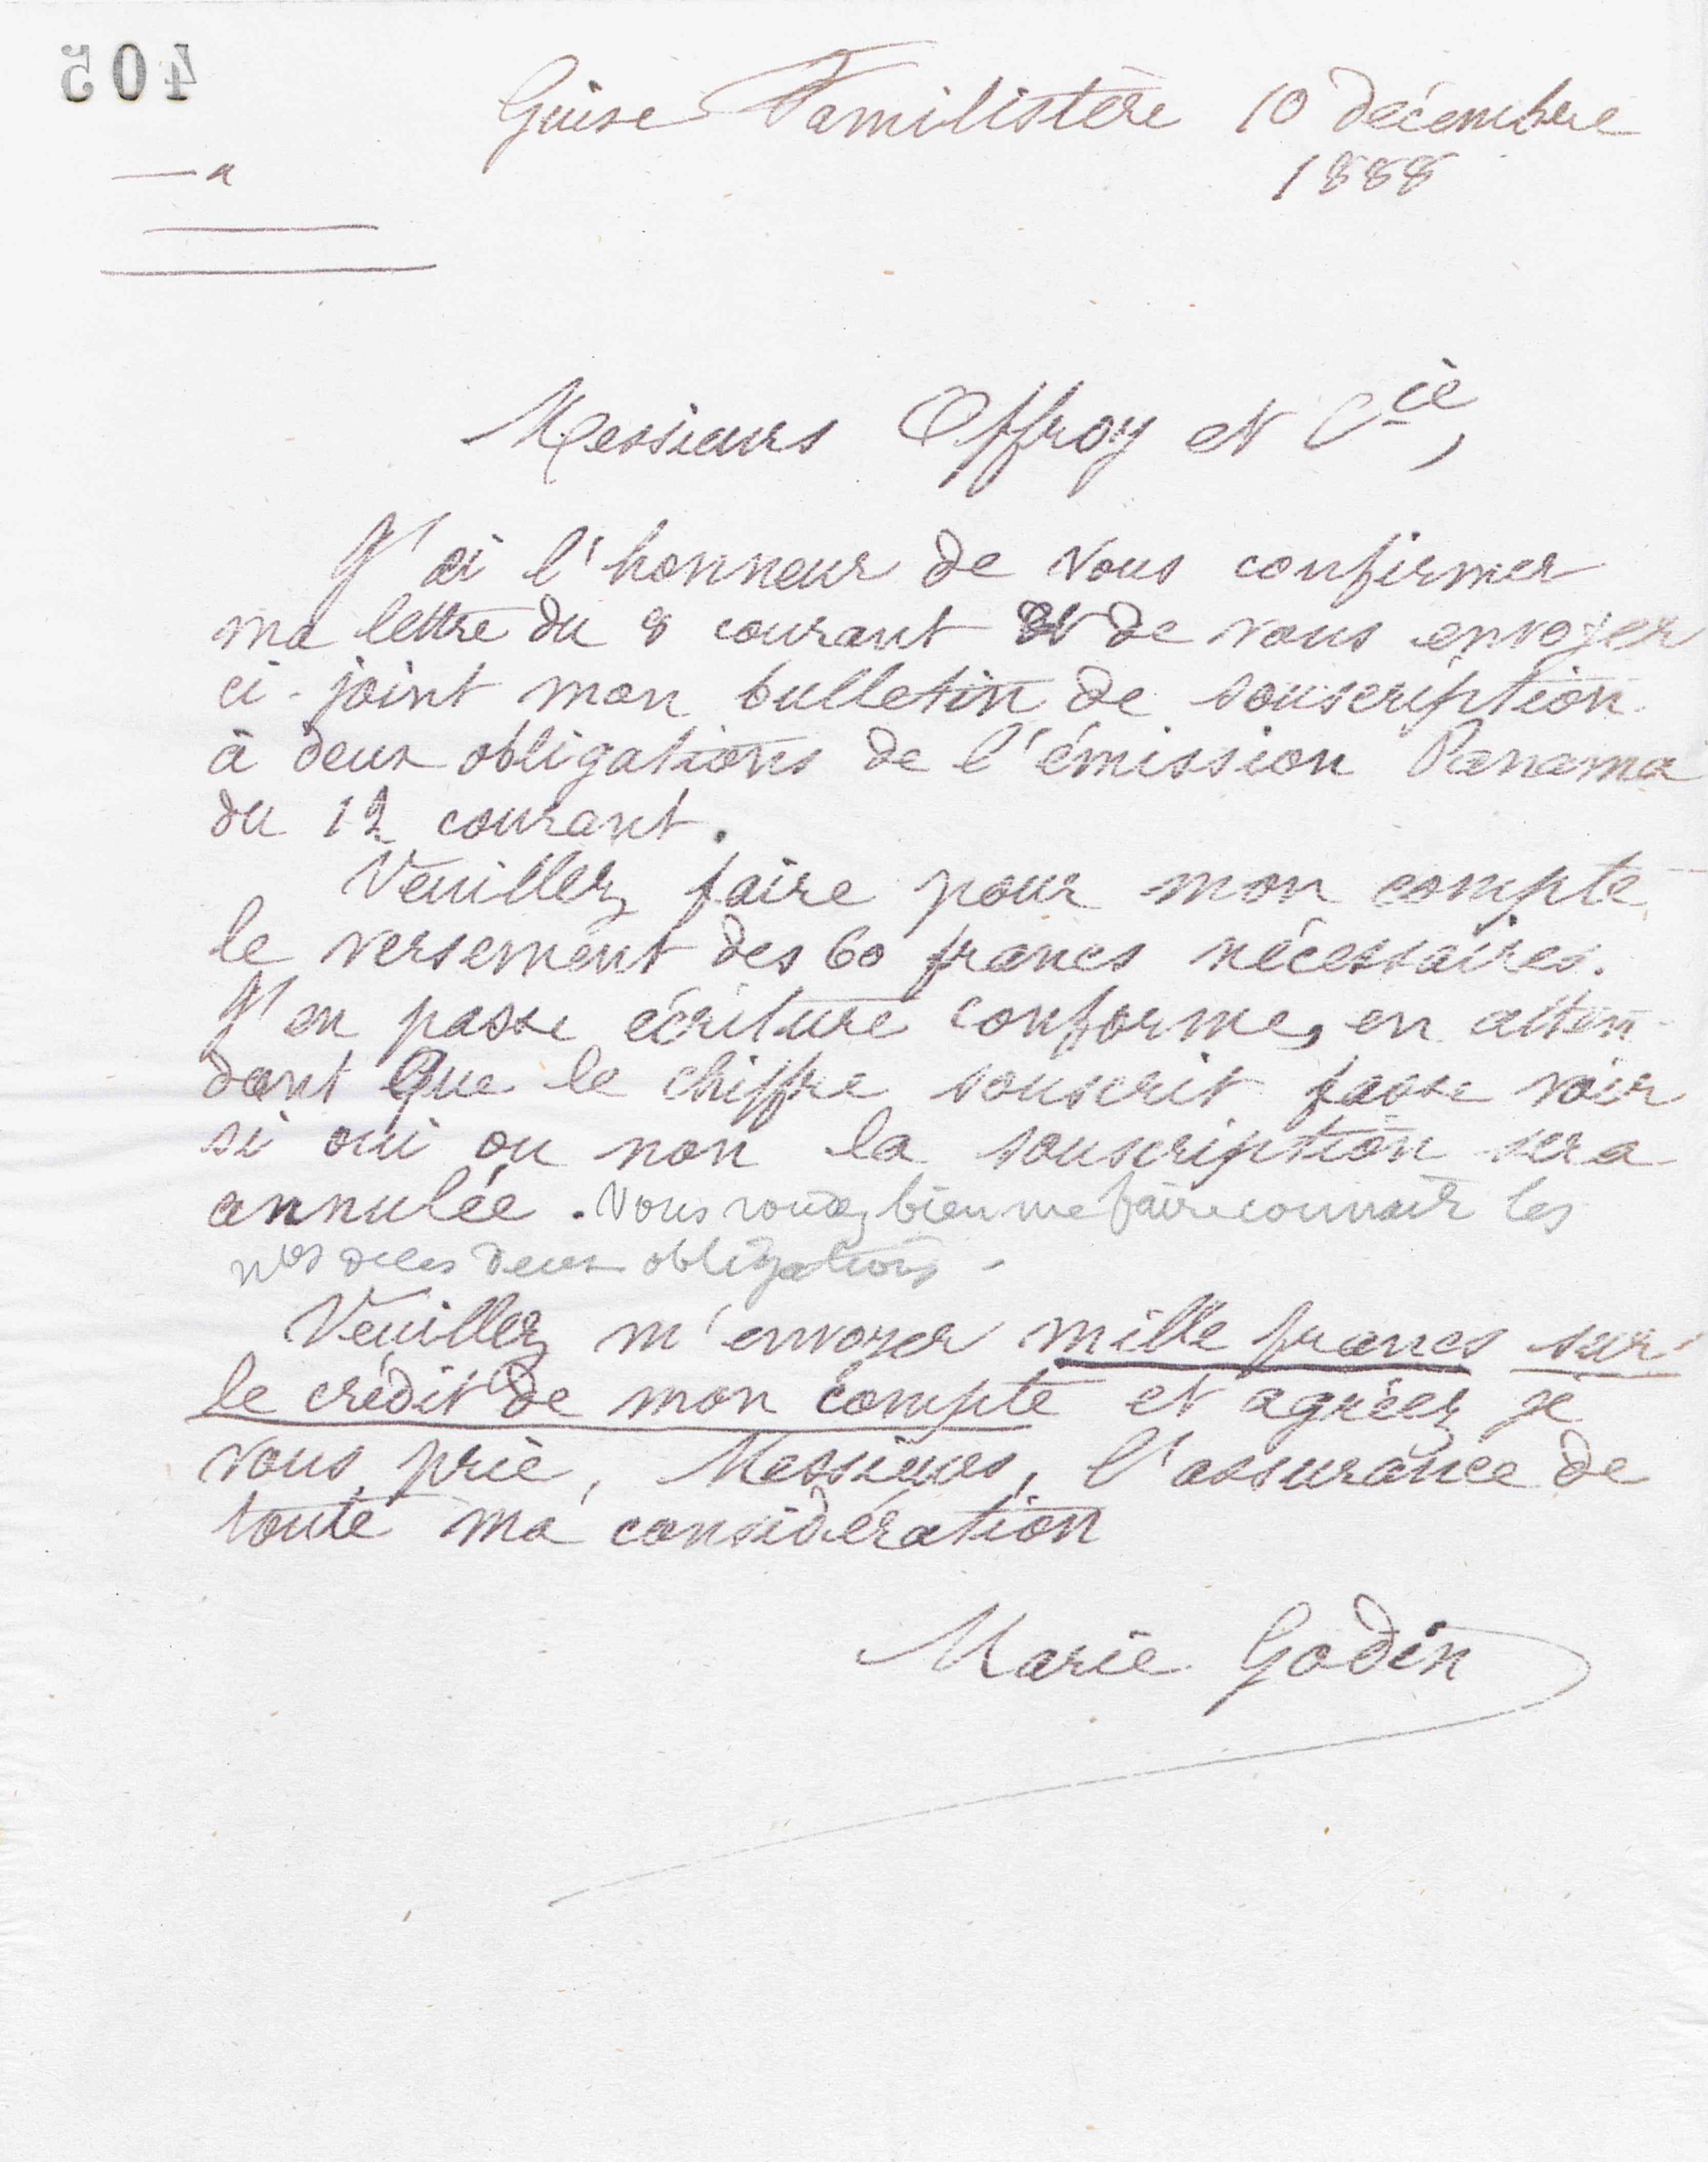 405
Guise Familistère 10 décembre
1888
Messieurs Offroy et Cie,
J'ai l'honneur de vous confirmer
ma lettre du 8 courant et de vous envoyer
ci-joint mon bulletin de souscription
à deux obligations de l'émission Panama
du 12 courant.
Veuillez faire pour mon compte
le versement des 60 francs nécessaires.
J'en passe écriture conforme, en atten-
dant que le chiffre souscrit fasse voir
si oui ou non la souscription sera
annulée. Vous voudrez bien me faire connaître les
nos de ces deux obligations.
Veuillez m'envoyer mille francs sur
le crédit de mon compte et agréez je
vous prie, Messieurs, l'assurance de
toute ma considération
Marie Godin